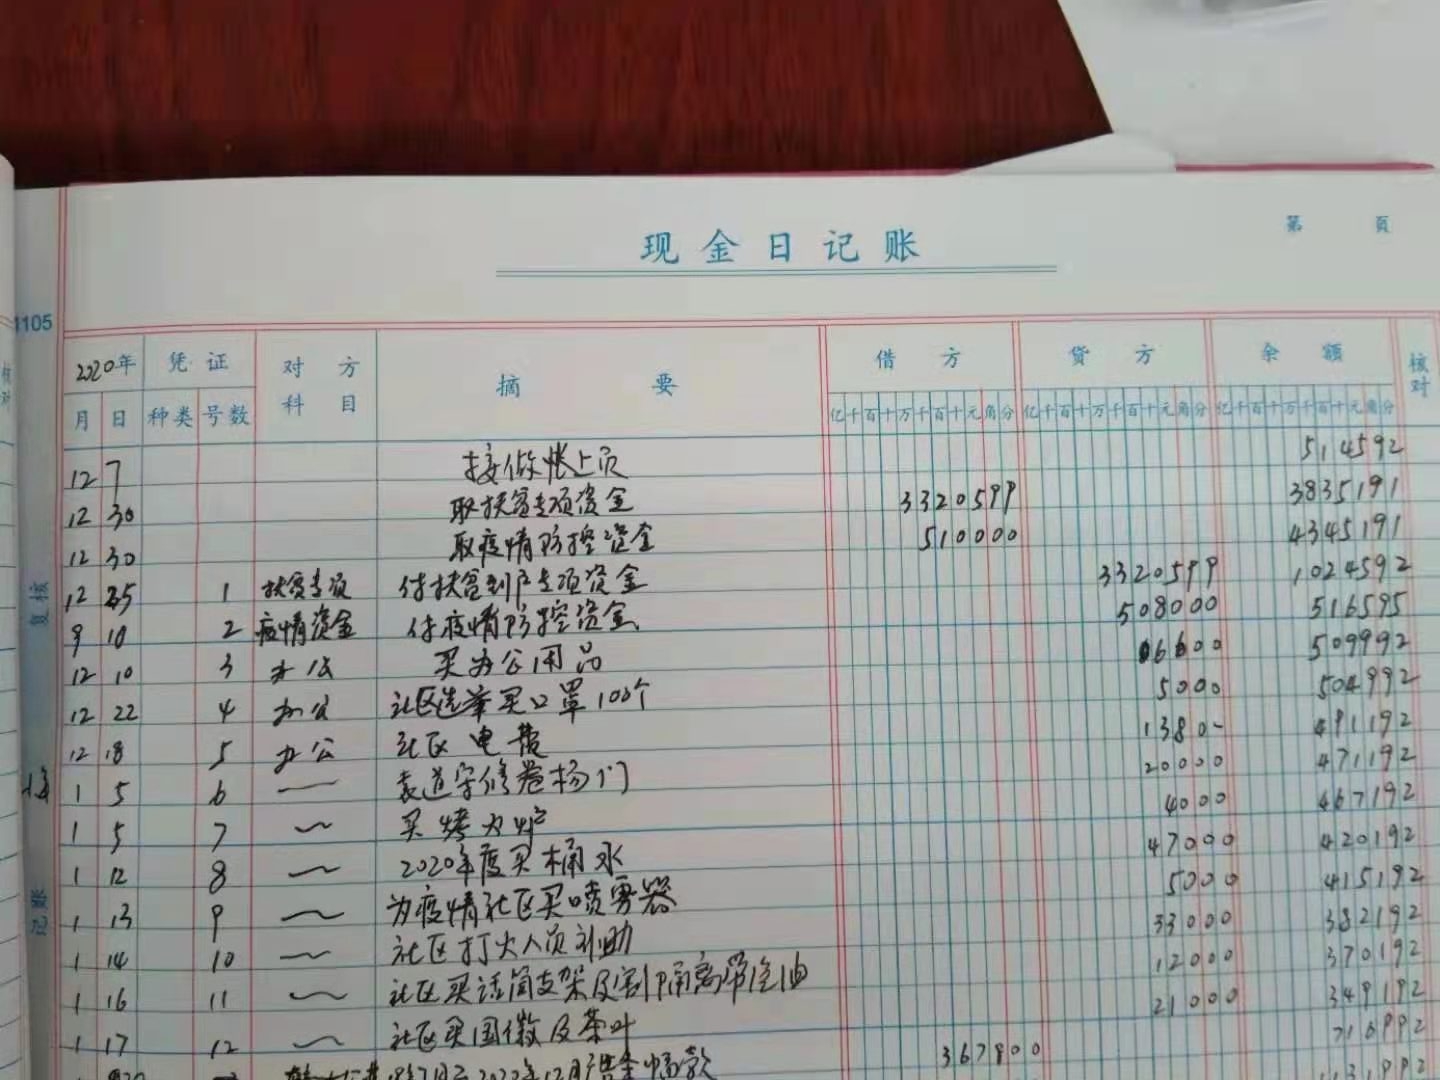 现金日记账
第 頁
1105
2020年 凭证 对方科目 摘要 借方 贷方 余额 核对
月 日 种类 号数 亿千百十万千百十元角分 亿千百十万千百十元角分 亿千百十万千百十元角分
12 7 接做帐上页 514592
12 30 取扶贫专项资金 3320599 3835191
12 30 取疫情防控资金 510000 4345191
12 25 1 扶贫专项 付扶贫到户专项资金 3320599 1024592
9 10 2 疫情资金 付疫情防控资金 508000 516595
12 10 3 办公 买办公用品 6600 509992
12 22 4 办公 社区选举买口罩100个 5000 504992
12 18 5 办公 社区电费 1380- 491192
1 5 6 袁道宇修卷杨门 20000 471192
1 5 7 买烤火炉 4000 467192
1 12 8 2020年度买桶水 47000 420192
1 13 9 为疫情社区买喷雾器 5000 415192
1 14 10 社区打火人员补助 33000 382192
1 16 11 社区买话筒支架及割隔离带汽油 12000 370192
1 17 12 社区买国徽及茶叶 21000 349192
367800 716992
复核
记账